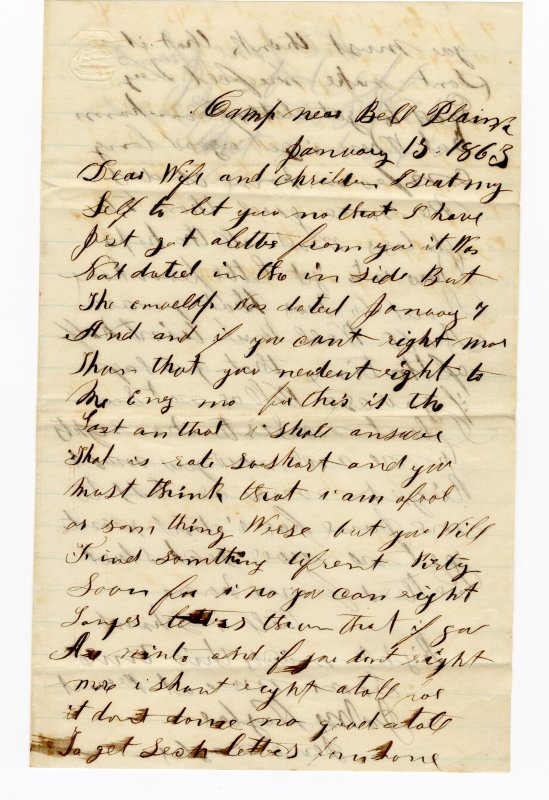 Camp near Bell Plain Va
January 13 1863
Dear Wife and children I seat my
Self to let you no that I have
Just got a letter from you it Was
Not dated in the in side But
The envelop was dated January 7
And and if you cant right mor
Than that you neadent right to
Me Eny mo for this is the
Last an that i shall answer
That is rote so short and you
Must think that i am a fool
or som thing Worse but you Will
Find something difrent Pirty
Soon for i no you can right
Longer letters than that if you
Ar a minto and if you dont right
mor i shant right a toll for
it dont dome no good a toll
To get sech letters from home